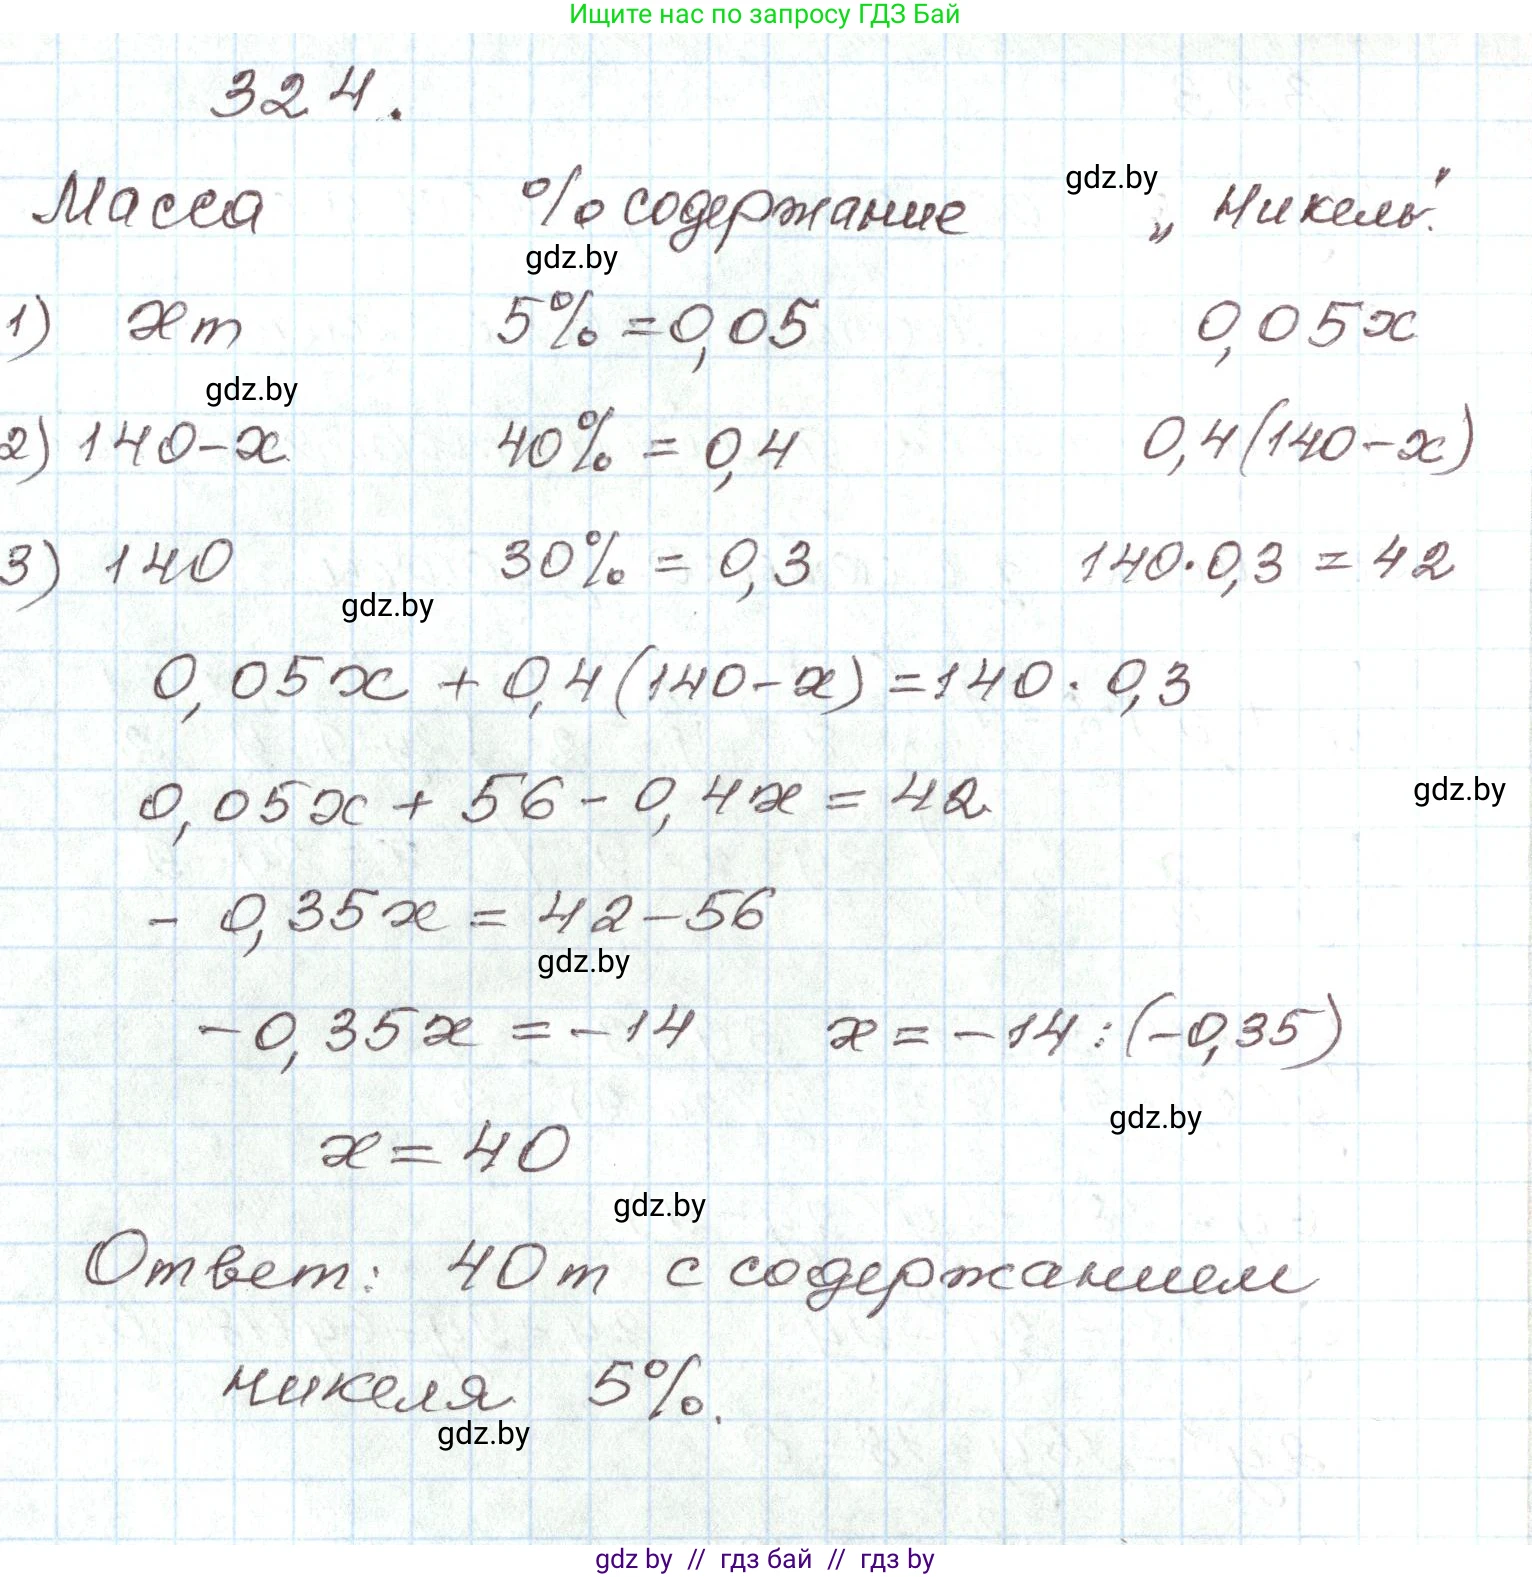 Ищите нас по запросу ГДЗ Бай
324.
Масса % содержание „Никель".
gdz.by
gdz.by
1) xт 5% = 0,05 0,05x
gdz.by
2) 140-x 40% = 0,4 0,4(140-x)
3) 140 30% = 0,3 140·0,3 = 42
gdz.by
0,05x + 0,4(140-x) = 140 · 0,3
0,05x + 56 - 0,4x = 42
gdz.by
- 0,35x = 42 - 56
gdz.by
-0,35x = -14 x = -14 : (-0,35)
gdz.by
x = 40
gdz.by
Ответ: 40т с содержанием
никеля 5%.
gdz.by
gdz by // гдз бай // гдз by